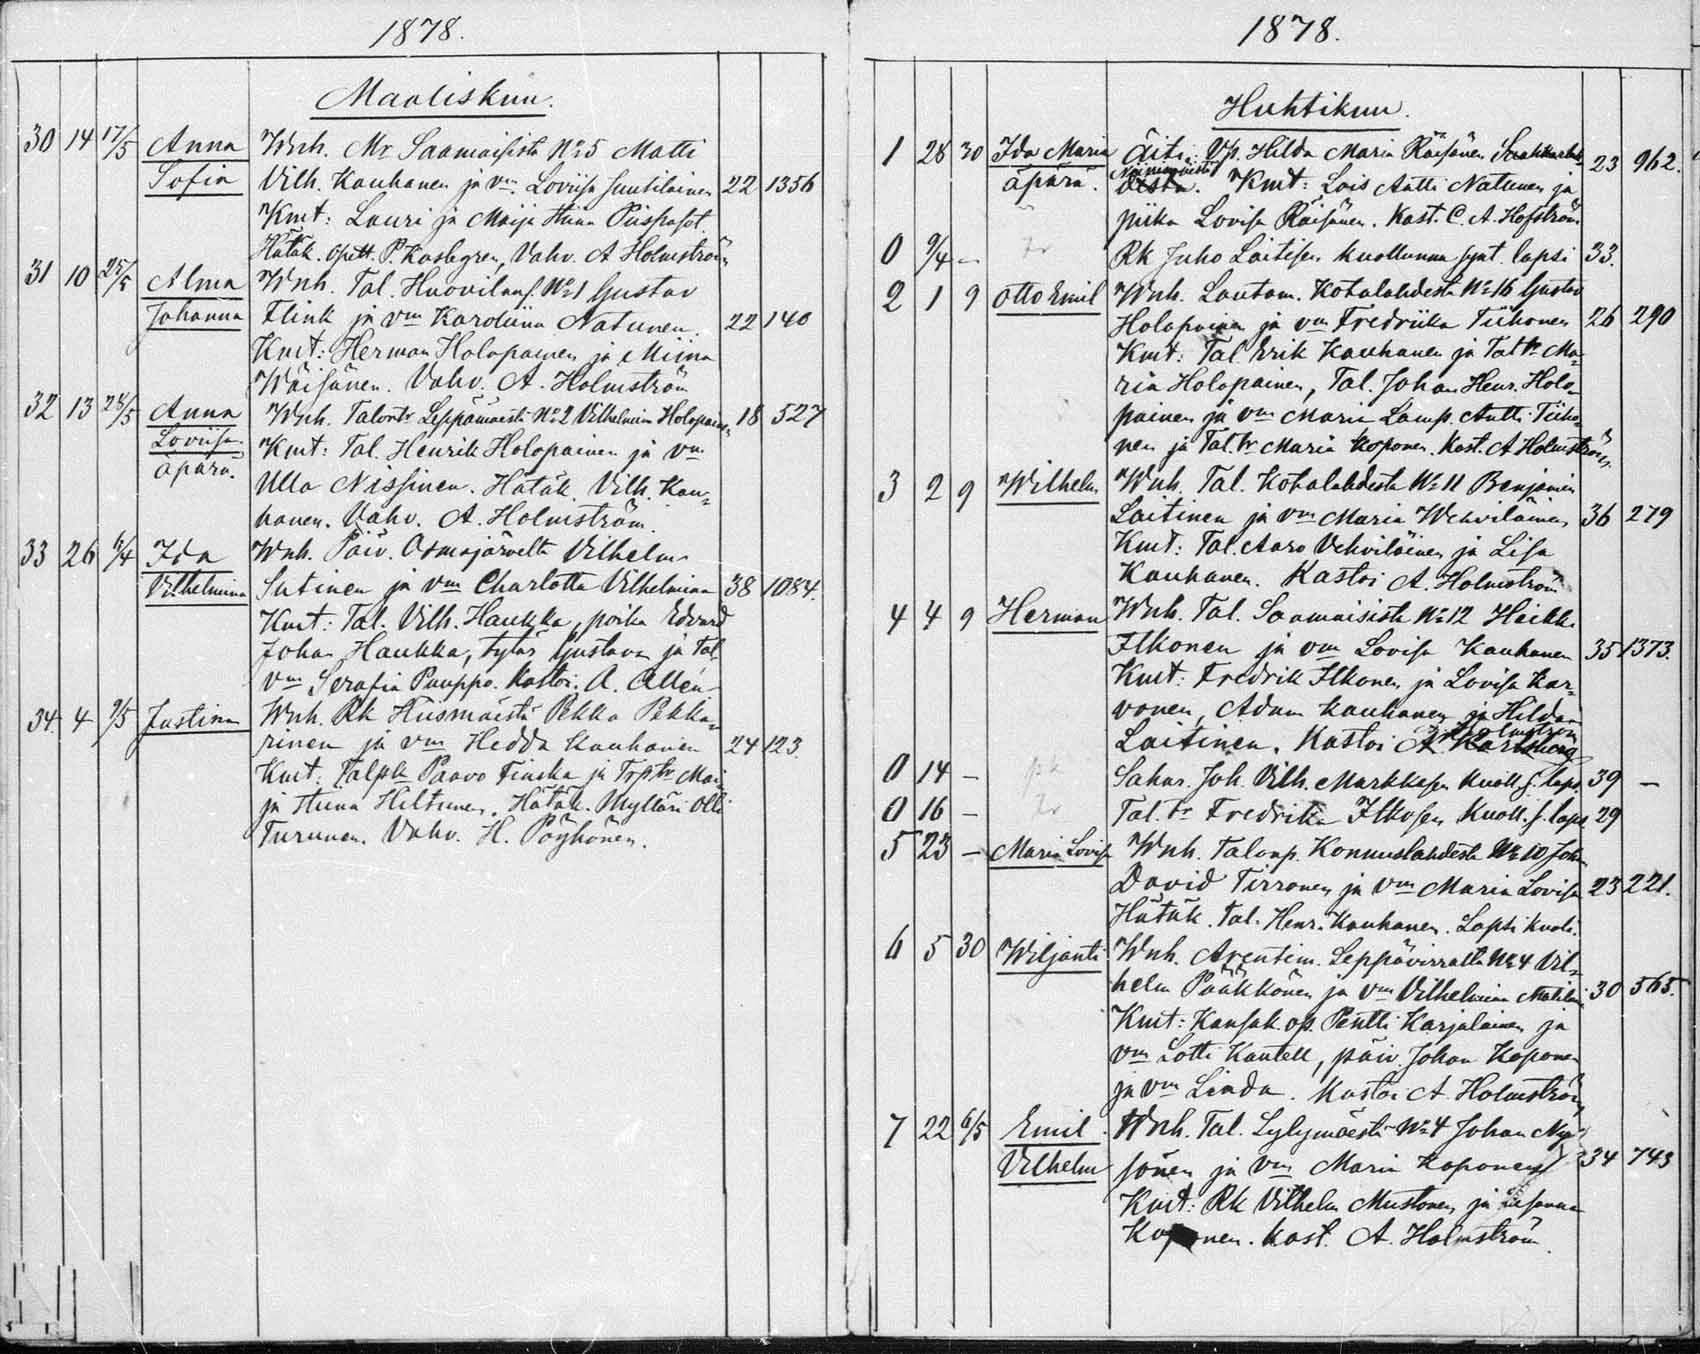 1878.
Maaliskuu.
30 14 17/5 Anna Wnh. Mr Saamaisista No 5 Matti
Sofia Vilh. Kauhanen ja vm Loviisa Suutilainen 22 1356
Kmt: Lauri ja Maija Piispaset.
Hätäk. opett. P. Kasbgren, Vahv. A Holmström
31 10 25/5 Alma Wnh. Tal. Huovilans. No 1 Gustav
Johanna Flink ja vm Karoliina Natunen. 22 140
Kmt: Herman Holopainen ja Miina
Wäisänen. Vahv. A. Holmström
32 13 28/5 Anna Wnh. Talontr Leppämäestä No 2 Vilhelmiina Holopainen 18 527
Loviisa Kmt: Tal. Henrik Holopainen ja vm
äpärä. Ulla Nissinen. Hätäk. Vilh. Kau-
hanen. Vahv. A. Holmström.
33 26 6/4 Ida Wnh. Päiv. Osmajärveltä Vilhelm
Vilhelmiina Sutinen ja vm Charlotta Vilhelmiina 38 1084.
Kmt: Tal. Vilh. Haukka, poika Edvard
Johan Haukka, tytär Gustava ja Tal.
vm Serafia Pauppo. Kastoi: A. Allén
34. 4 9/5 Justina Wnh. Rk Husmäestä Pekka Pekka-
rinen ja vm Hedda Kauhanen 24 123.
Kmt: Talpk Paavo Finska ja Trptr Mai-
ja Hiltunen. Hätäk. Mylläri Olli
Turunen. Vahv. H. Pöyhönen.
1878.
Huhtikuu.
1 28 30 Ida Maria Äiti: Vp. Hilda Maria Räisänen 23 962.
äpärä. Kmt: Lois Antti Natunen ja
piika Lovisa Räisänen. Kast. C. A. Hofström
0 9/4 – Rk Juho Laitisen kuollunna synt. lapsi 33.
2 1 9 Otto Emil Wnh. Lautam. Kotalahdesta No 16 Gustav
Holopainen ja vm Fredriika Tiihonen 26 290
Kmt: Tal. Erik Kauhanen ja Taltr Ma-
ria Holopainen, Tal. Johan Henr. Holo-
painen ja vm Maria Lamp. Antti Tiiho-
nen ja Taltr Maria Koponen. Kast. A Holmström
3 2 9 Wilhelm Wnh. Tal. Kotalahdesta No 11 Benjamin
Laitinen ja vm Maria Wehviläinen 36 279
Kmt: Tal. Aaro Vehviläinen ja Lisa
Kauhanen. Kastoi A. Holmström
4 4 9 Herman Wnh. Tal. Saamaisista No 12 Heikki
Ilkonen ja vm Lovisa Kauhanen 35 1373.
Kmt: Fredrik Ilkonen ja Lovisa Kar-
vonen, Adam Kauhanen ja Hilda
Laitinen. Kastoi A. Holmström
0 14 – Sahar. Joh. Vilh. Markkasen kuoll. s. laps. 39 –
0 16 – Tal. tr Fredrika Ilkosen kuoll. s. laps 29
5 23 – Maria Lovisa Wnh. Talonp. Konnuslahdesta No 10 Joh.
David Tirronen ja vm Maria Lovisa 23 221.
Hätäk. Tal. Henr. Kauhanen. Lapsi kuoli.
6 5 30 Wiljanti Wnh. Arentim. Leppävirralta No 4 Vil-
helm Pääkkönen ja vm Vilhelmiina 30 565.
Kmt: Kansak. op. Pentti Karjalainen ja
vm Lotti Kantell, päiv. Johan Koponen
ja vm Linda. Kastoi A. Holmström
7 22 6/5 Emil Wnh. Tal. Lylymäestä No 4 Johan Ny-
Vilhelm ja vm Maria Koponen 34 743
Kmt: Rk Vilhelm Mustonen ja Susanna
Koponen. Kast. A. Holmström.